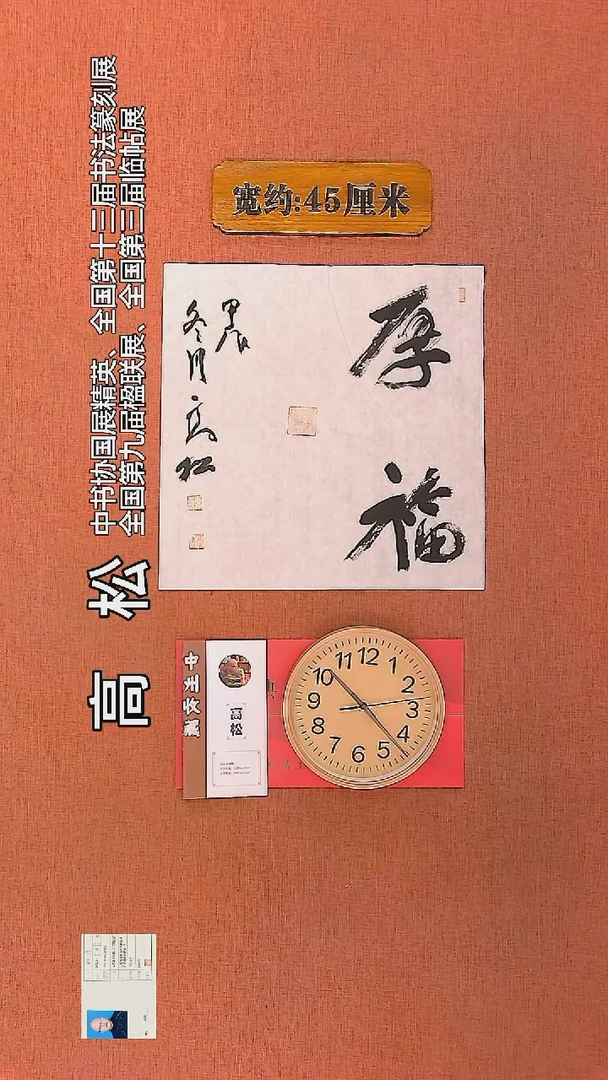 宽约:45厘米
厚福
甲辰
冬月高松
高松
中书协国展精英、全国第十三届书法篆刻展
全国第九届楹联展、全国第三届临帖展
高松
12
1
2
3
4
5
6
7
8
9
10
11